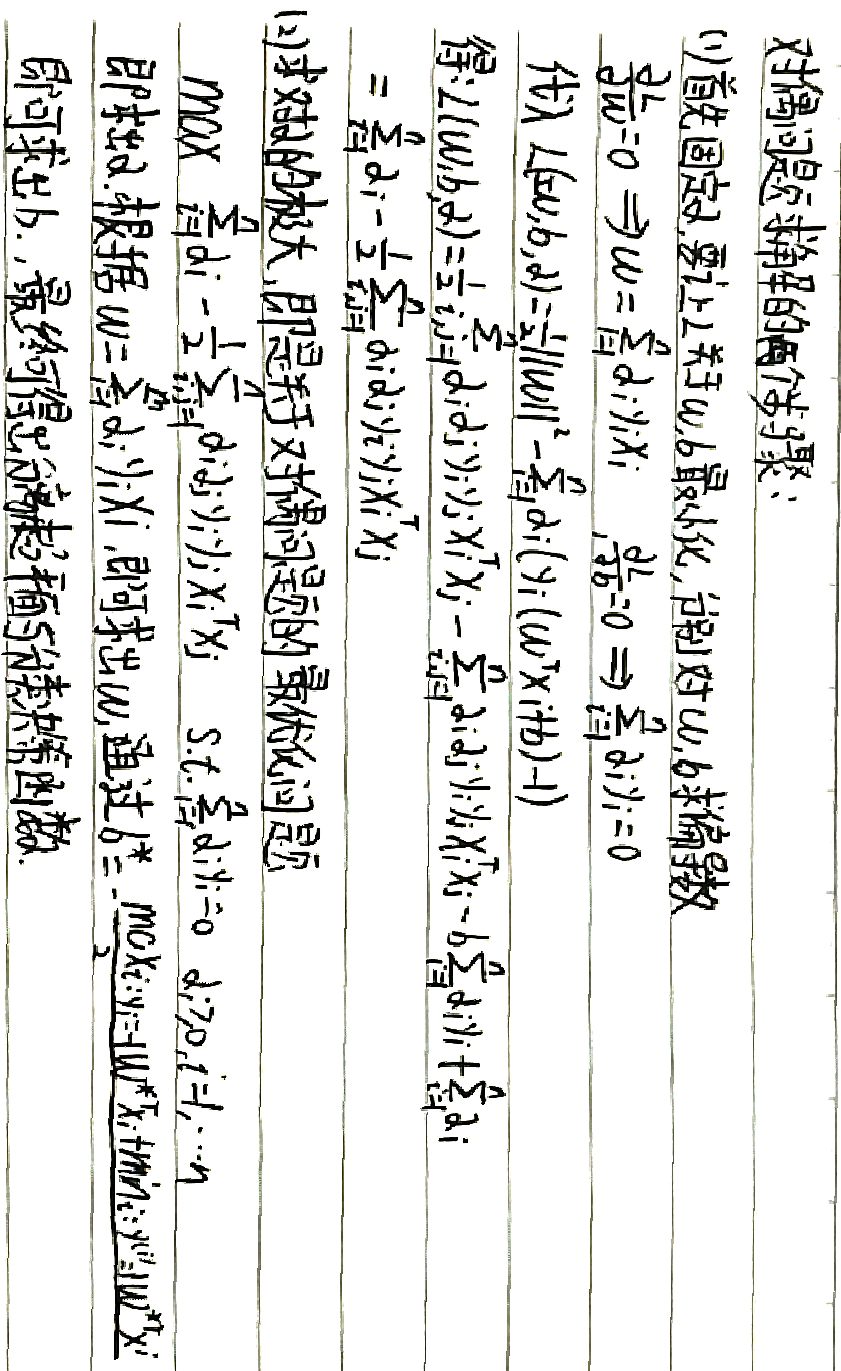 对偶问题求解的两个步骤：
(1)首先固定α,要让L关于w,b最小化,分别对w,b求偏导数
∂L/∂w=0 ⇒ w=∑_{i=1}^{n} αiyixi  ∂L/∂b=0 ⇒ ∑_{i=1}^{n} αiyi=0
代入 L(w,b,α)=1/2||w||²-∑_{i=1}^{n} αi(yi(wᵀxi+b)-1)
得:L(w,b,α)=1/2∑_{i,j=1}^{n} αiαjyiyjxiᵀxj-∑_{i,j=1}^{n} αiαjyiyjxiᵀxj-b∑_{i=1}^{n} αiyi+∑_{i=1}^{n} αi
=∑_{i=1}^{n} αi-1/2∑_{i,j=1}^{n} αiαjyiyjxiᵀxj
(2)求对α的极大,即是关于对偶问题的最优化问题
max ∑_{i=1}^{n} αi-1/2∑_{i,j=1}^{n} αiαjyiyjxiᵀxj  s.t. ∑_{i=1}^{n} αiyi=0 αi≥0,i=1,…n
即求出α.根据w=∑_{i=1}^{n} αiyixi,即可求出w,通过b*=-(max_{i:yi=-1}w*ᵀxi+min_{i:yi=1}w*ᵀxi)/2
即可求出b.,最终可得出分离超平面与分类决策函数.